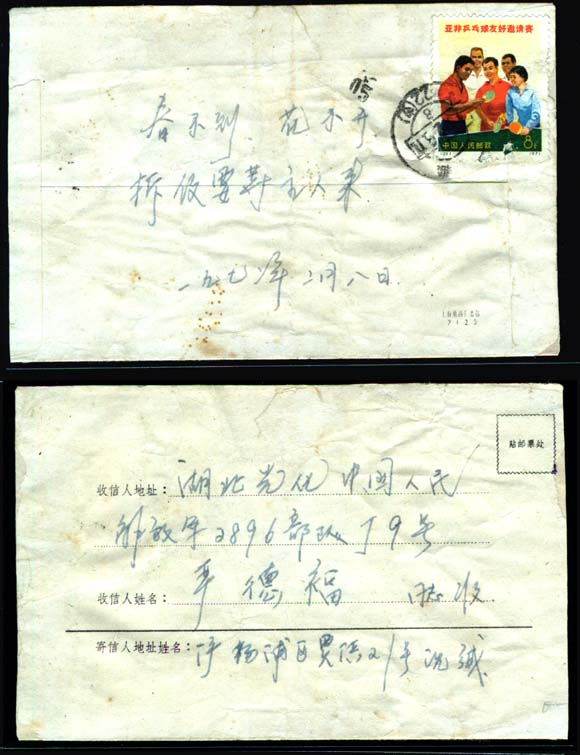 亚非乒乓球友好邀请赛
中国人民邮政
8分
春不到 花不开
拆倣要等主人来
一九七 年二月八日
7125
贴邮票处
收信人地址：湖北光化中国人民
解放军2896部队J9号
收信人姓名：严德福 收
寄信人地址姓名：沪杨浦区 21号沈诚